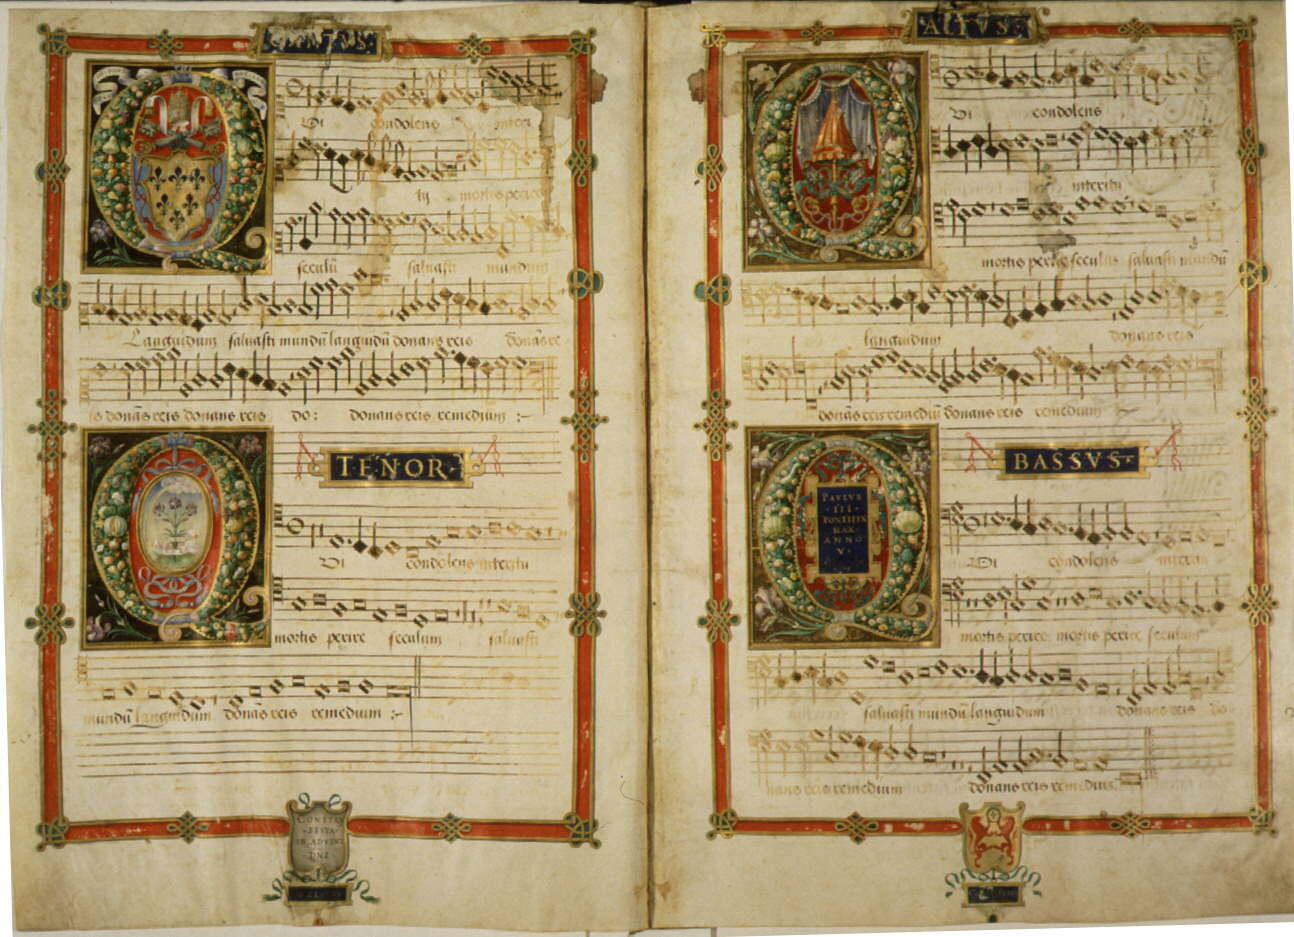 Qui condolens interi
tu mortis perire
seculum salvasti mundum
Languidum salvasti mundū languidū donans reis donās re
is donās reis donans reis do: donans reis remedium :~
TENOR
Qui condolens interitu
mortis perire seculum salvasti
mundū languidum donās reis remedium :~
CONSTAN
FESTA
IN ADVENT
DNI
ALTVS
Qui condolens
interitu
mortis perire seculum salvasti mundū
languidum donans reis
donās reis remediū donans reis remedium
BASSVS
PAVLVS
III
PONTIFEX
MAX
ANNO
V
Qui condolens interitu
mortis perire mortis perire seculum
salvasti mundum languidum donans reis do
nans reis remedium donans reis remedium